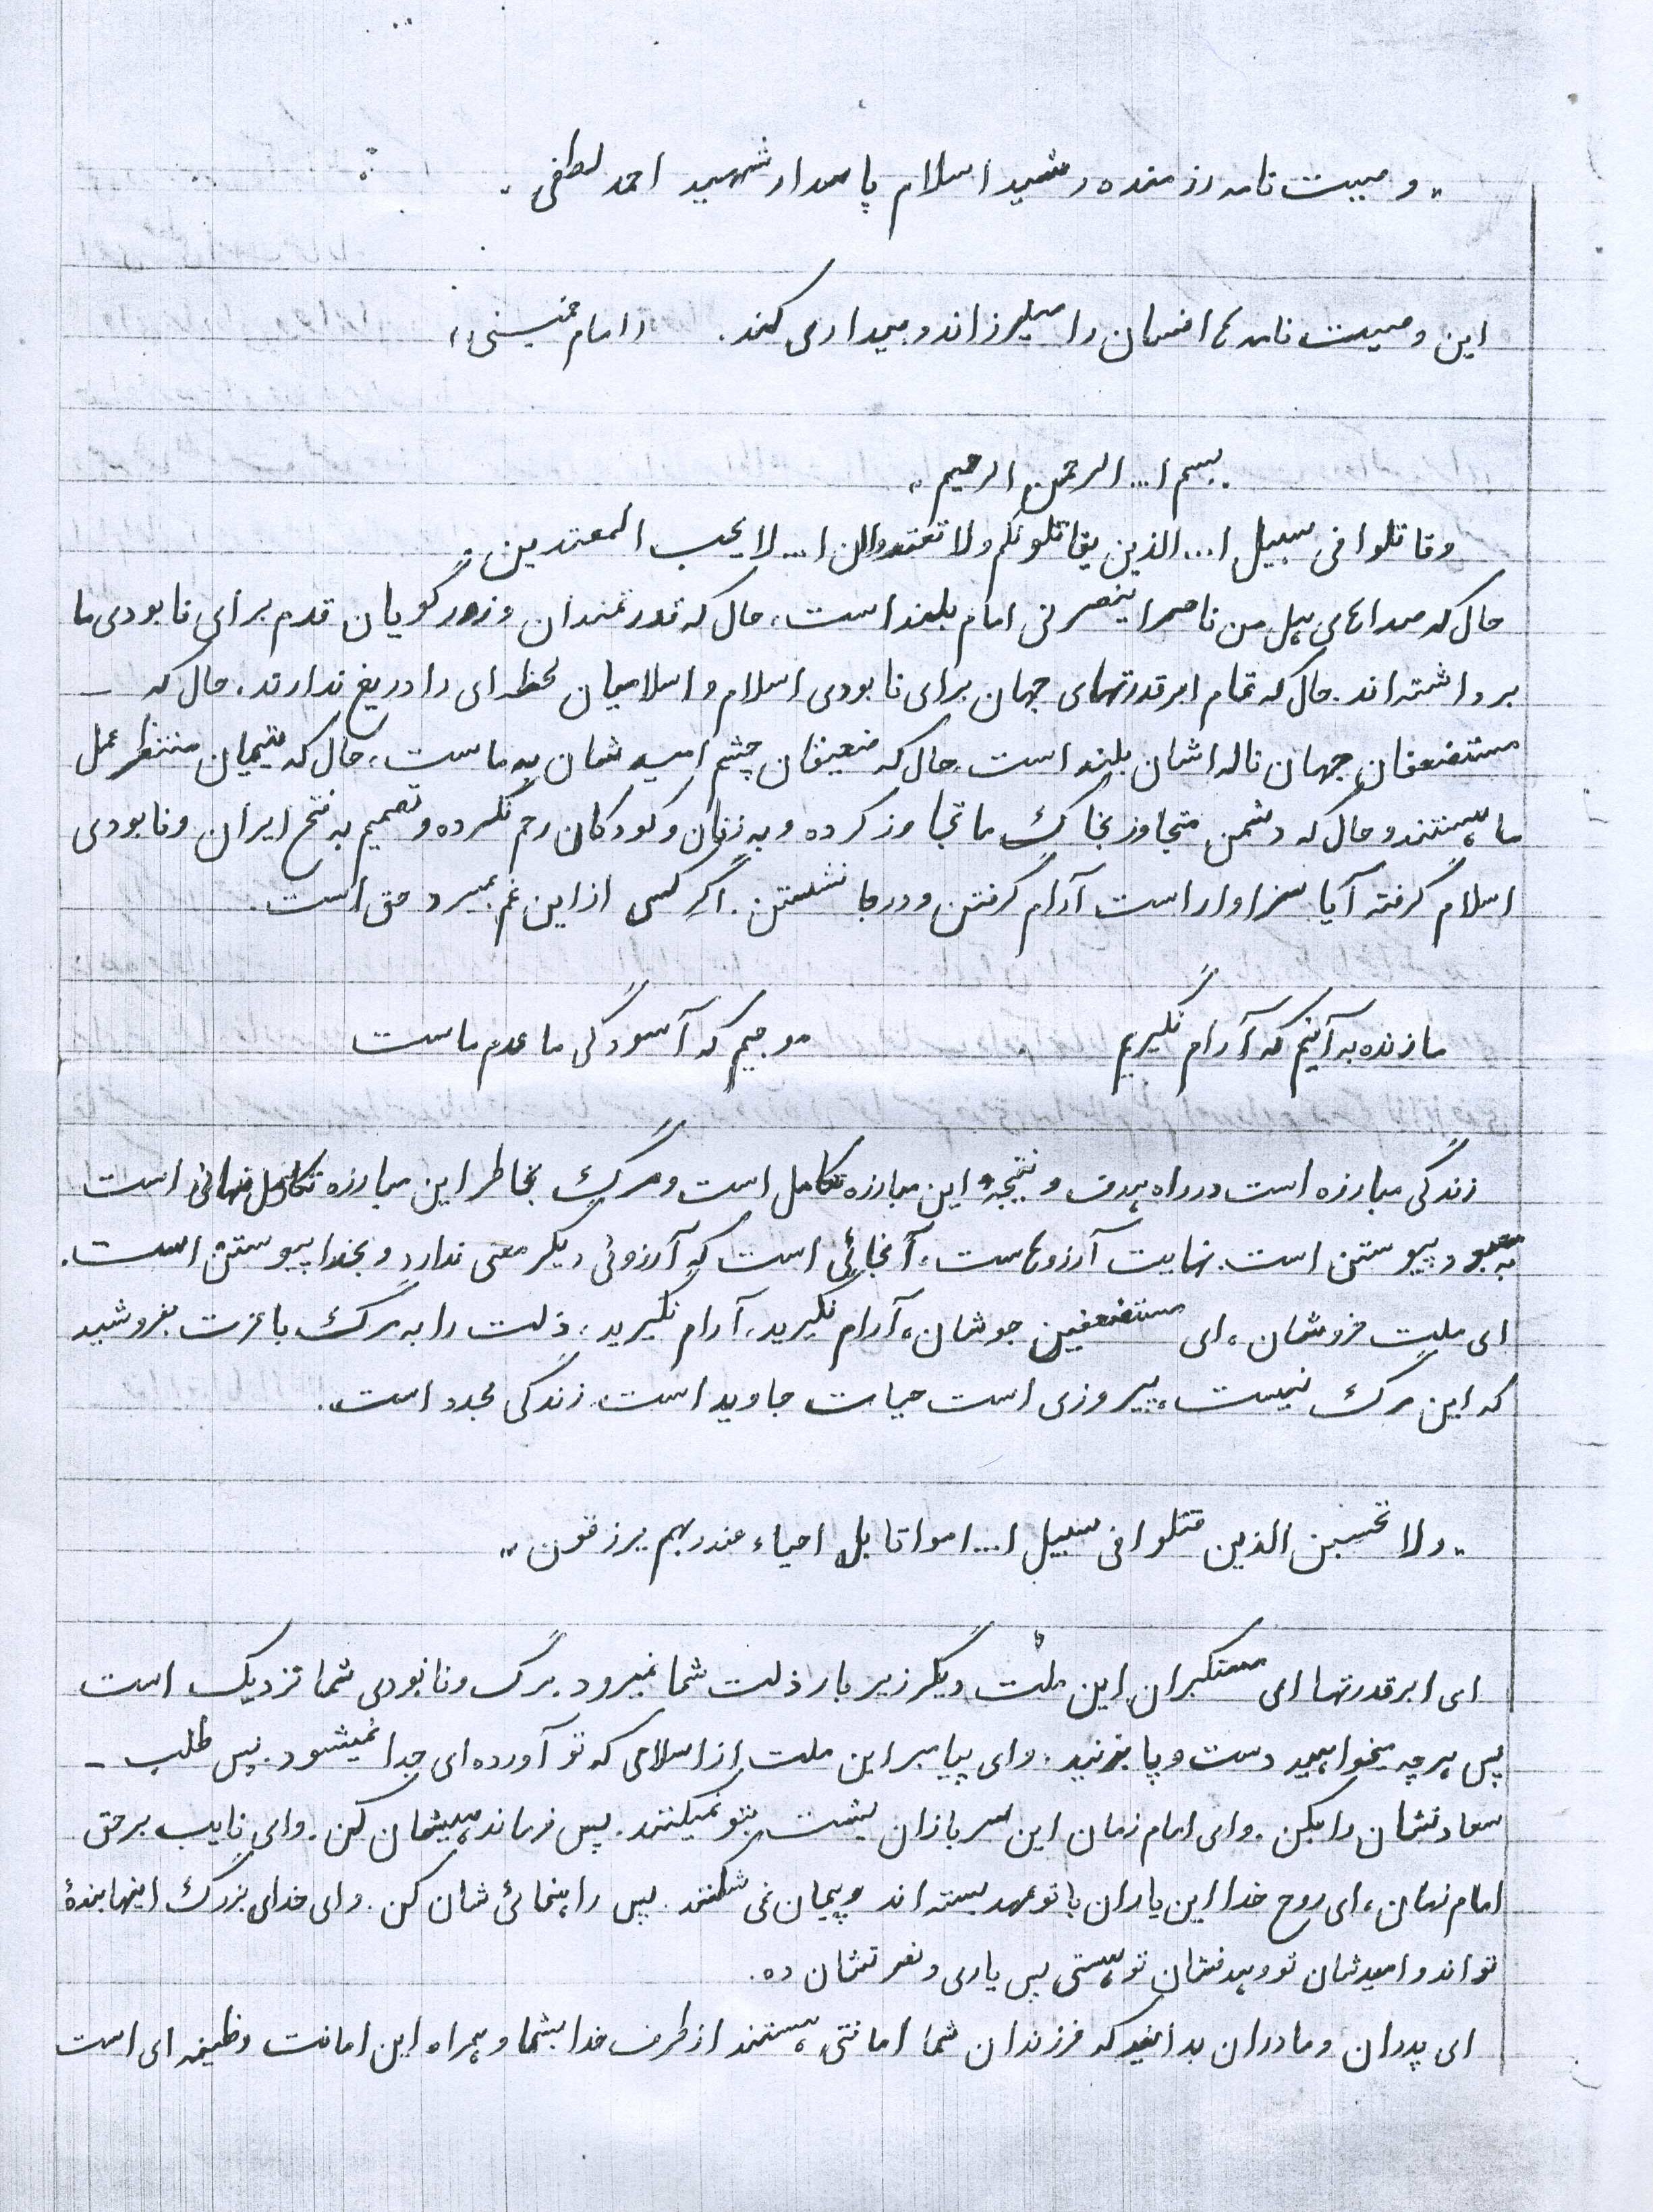 "وصیت نامه رزمنده رشید اسلام پاسدار شهید احمد لطفی"
این وصیت نامه ها انسان را میلرزاند و بیدار می کند. (امام خمینی)
"بسم ا... الرحمن الرحیم"
وقاتلوا فی سبیل ا... الذین یقاتلونکم ولا تعتدوا ان ا... لا یحب المعتدین.
حال که صداهای هل من ناصر ینصرنی امام بلند است، حال که قدرتمندان و زورگویان قدم برای نابودی ما
برداشته اند. حال که تمام ابرقدرتهای جهان برای نابودی اسلام و اسلامیان لحظه ای را دریغ ندارند. حال که -
مستضعفان جهان ناله اشان بلند است. حال که ضعیفان چشم امید شان به ماست، حال که یتیمان منتظر عمل
ما هستند و حال که دشمن متجاوز بخاک ما تجاوز کرده و به زنان و کودکان رحم نکرده و تصمیم به فتح ایران و نابودی
اسلام گرفته آیا سزاوار است آرام گرفتن و درجا نشستن. اگر کسی از این غم بمیرد حق است.
ما زنده به آنیم که آرام نگیریم موجیم که آسودگی ما عدم ماست
زندگی مبارزه است در راه هدف و نتیجه این مبارزه تکامل است و مرگ بخاطر این مبارزه تکامل نهائی است
به معبود پیوستن است. نهایت آرزوهاست، آنجائی است که آرزوئی دیگر معنی ندارد و بخدا پیوستن است.
ای ملت خروشان، ای مستضعفین جوشان، آرام نگیرید، آرام نگیرید، ذلت را به مرگ با عزت بفروشید
که این مرگ نیست، پیروزی است حیات جاوید است. زندگی مجدد است.
"ولا تحسبن الذین قتلوا فی سبیل ا... امواتا بل احیاء عند ربهم یرزقون"
ای ابرقدرتها ای مستکبران این ملت دیگر زیر بار ذلت شما نمیرود. مرگ و نابودی شما نزدیک است
پس هرچه میخواهید دست و پا بزنید. وای پیامبر این ملت از اسلامی که تو آورده ای جدا نمیشود. پس طلب -
سعادتشان را بکن. وای امام زمان این سربازان پشت بتو نمیکنند. پس فرماندهیشان کن. وای نایب برحق
امام زمان، ای روح خدا این یاران با تو عهد بسته اند و پیمان نمی شکنند. پس راهنمائی شان کن. وای خدای بزرگ اینها بندهٔ
تواند و امیدشان تو و هدفشان تو هستی پس یاری و نصرتشان ده.
ای پدران و مادران بدانید که فرزندان شما امانتی هستند از طرف خدا بشما و همراه این امانت وظیفه ای است